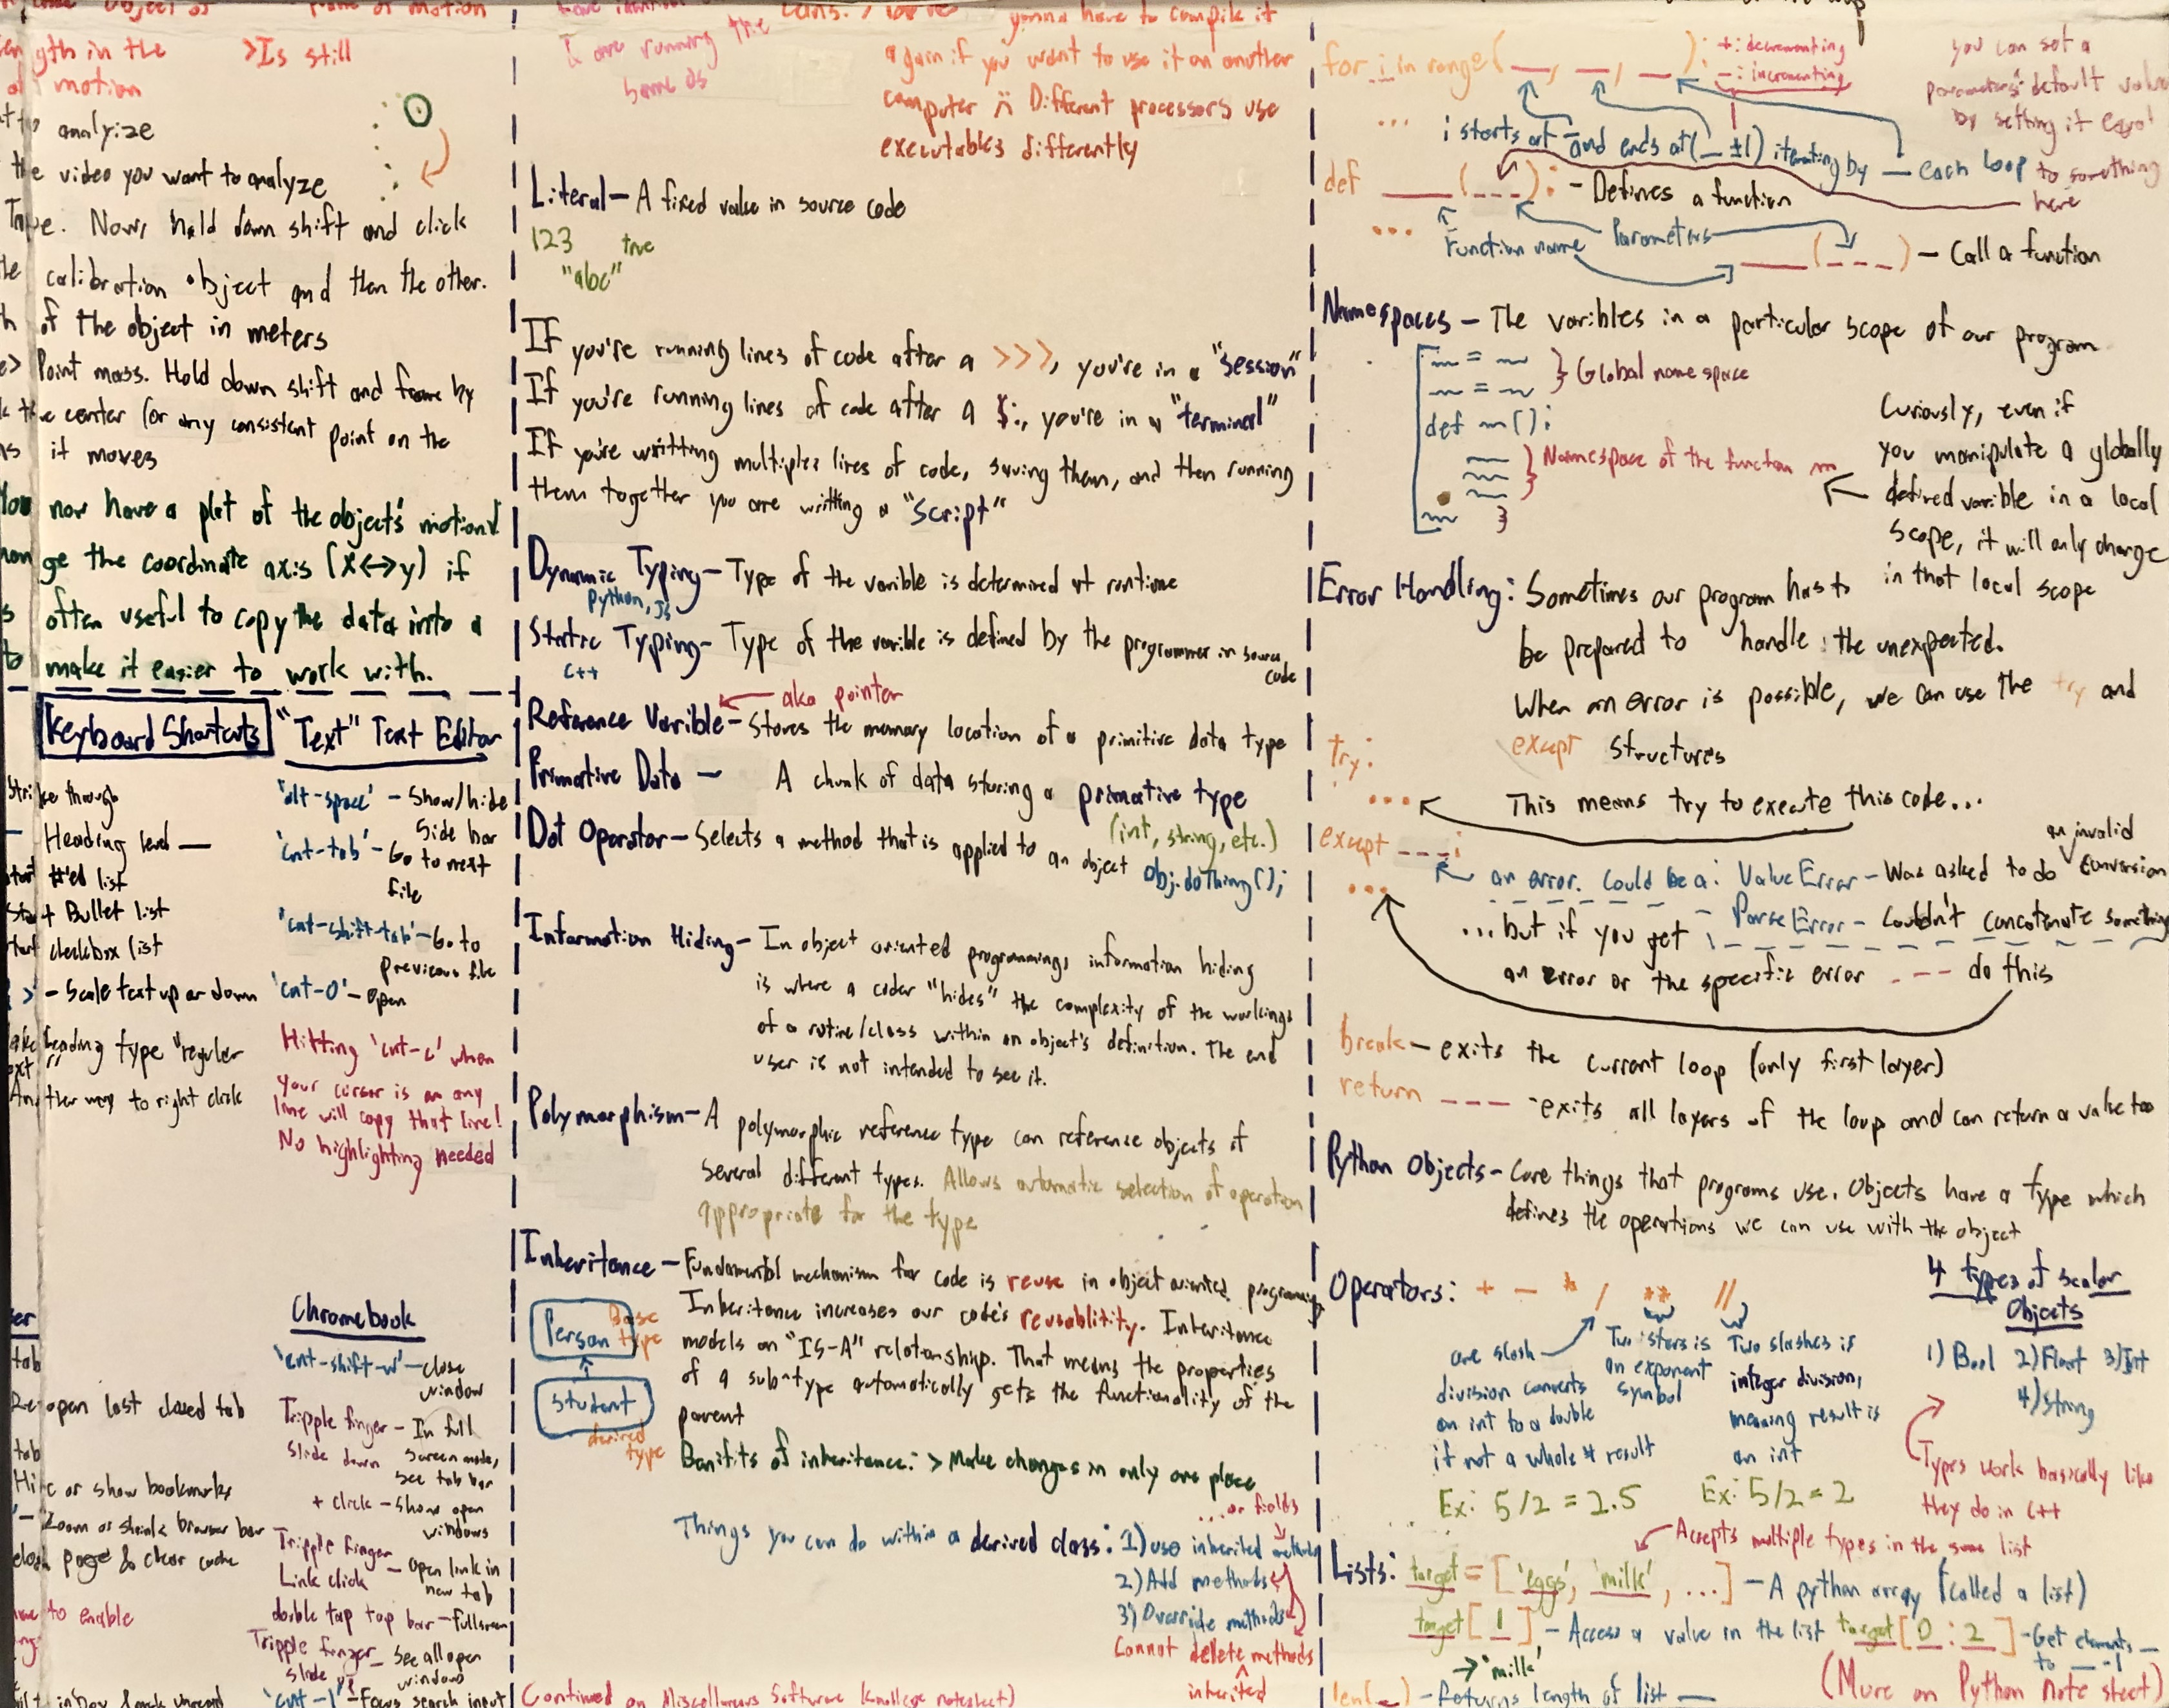 object as
plane of motion
length in the >Is still
of motion
to analyze
the video you want to analyze
Tape. Now, hold down shift and click
calibration object and then the other.
of the object in meters
Point mass. Hold down shift and frame by
the center (or any consistent point on the
it moves
You now have a plot of the objects' motion!
ge the coordinate axis (x<->y) if
often useful to copy the data into a
to make it easier to work with.
Keyboard Shortcuts
Strike through
Heading level —
start #'ed list
Start Bullet list
start checkbox list
> - Scale text up or down
heading type "regular
Another way to right click
"Text" Text Editor
'alt-space' - Show/hide
Side bar
'cnt-tab' - Go
to next
file
'cnt-shift-tab' - Go to
previous file
'cnt-O' - Open
Hitting 'cnt-c' when
your cursor is on any
line will copy that line!
No highlighting needed
tab
Re-open last closed tab
tab
Hide or show bookmarks
- Zoom or shrink browser bar
page & clear cache
to enable
Chromebook
'cnt-shift-w' - close
window
Tripple finger - In full
slide down screen mode,
see tab bar
+ click - show open
windows
Tripple finger
Link click - open link in
new tab
double tap top bar - fullscreen
Tripple finger - See all open
slide up windows
'cnt-l' - Focus search input
I are running the
same os
gonna have to compile it
again if you want to use it on another
computer :( Different processors use
executables differently
Literal - A fixed value in source code
123 true
"abc"
If you're running lines of code after a >>>, you're in a "session"
If you're running lines of code after a $:, you're in a "terminal"
If you're writting multiple lines of code, saving them, and then running
them together you are writting a "Script"
Dynamic Typing - Type of the varible is determined at runtime
Python, JS
Static Typing - Type of the varible is defined by the programmer in source
code
C++
aka pointer
Reference Varible - Stores the memory location of a primitive data type
Primative Data - A chunk of data storing a primative type
(int, string, etc.)
Dot Operator - Selects a method that is applied to an object obj.doThing();
Information Hiding - In object oriented programming, information hiding
is where a coder "hides" the complexity of the workings
of a rotine/class within an object's definition. The end
user is not intended to see it.
Polymorphism - A polymorphic reference type can reference objects of
several different types. Allows automatic selection of operation
appropriate for the type
Inheritance - Fundamental mechanism for code is reuse in object oriented programming
Inheritance increases our code's reusablitity. Inheritance
models an "IS-A" relationship. That means the properties
of a sub-type automatically gets the functionality of the
parent
Person Base type
Student derived type
Banifits of inheritance: > Make changes in only one place
...or fields
Things you can do within a derived class: 1) use inherited methods
2) Add methods
3) Override methods
Cannot delete methods
inherited
(Continued on Miscellaneous Software Knowllege notesheet)
for i in range(__, __, __): +: decrementing
-: incrementing
... i starts at _ and ends at (_ ±1) iterating by — each loop
you can set a
parameters' default value
by setting it equal
to something
here
def ____(---): - Defines a function
... Function name Parameters ____(---) - Call a function
Namespaces - The varibles in a particular scope of our program
~ = ~
~ = ~ } Global name space
def m():
} Namespace of the function m
Curiously, even if
you manipulate a globally
defined varible in a local
scope, it will only change
in that local scope
Error Handling: Sometimes our program has to
be prepared to handle the unexpected.
When an error is possible, we can use the try and
except structures
try:
... This means try to execute this code...
except ---:
an error. Could be a: ValueError - Was asked to do an invalid conversion
ParseError - Couldn't concatenate something
... ...but if you get
an error or the specific error --- do this
break - exits the current loop (only first layer)
return --- - exits all layers of the loop and can return a value too
Python Objects - Core things that programs use. Objects have a type which
defines the operations we can use with the object
Operators: + - * / ** //
one slash
division converts
an int to a double
if not a whole # result
Ex: 5/2 = 2.5
Two stars is
an exponent
symbol
Two slashes is
integer division,
meaning result is
an int
Ex: 5/2 = 2
4 types of scalar
Objects
1) Bool 2) Float 3) Int
4) String
Types work basically like
they do in C++
Accepts multiple types in the same list
Lists: target = ['eggs', 'milk', ...] - A python array (called a list)
target[1] - Access a value in the list target[0:2] - Get elements —
to __-1
→ 'milk'
len(_) - Returns length of list __
(More on Python Note sheet)